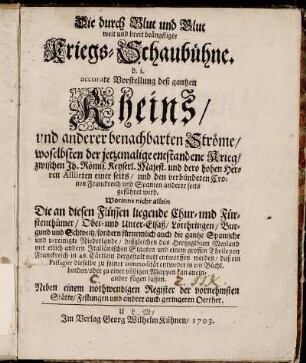 Die durch Blut und Glut
weit und breit beängstigte
Kriegs-Schaubühne.
d. i.
accurate Vorstellung deß gantzen
Rheins/
und anderer benachbarten Ströme/
woselbsten der jetzmalige entstandene Krieg/
zwischen Ih. Römis. Keyserl. Majest. und dero hohen Her-
ren Alliirten einer seits/ und den verbündeten Cro-
nen Franckreich und Spanien anderer seits
geführet wird.
Worinne nicht allein
Die an diesen Flüssen liegende Chur- und Für-
stenthümer/ Ober- und Unter-Elsaß/ Lothringen/ Bur-
gund und Schweitz/ sondern fürnemlich auch die gantze Spanische
und vereinigte Niederlande/ das Hertzogthum Meyland
mit etlich andern Italiänischen Staaten und einem grossen Theile von
Franckreich in 20. Cärtlein dergestalt nett entworffen werden/ daß ein
Passagier dieselbe zu seiner commodität entweder in ein Büchl.
binden/ oder zu einer völligen Mappen kan an ein-
ander fügen lassen.
Neben einem nothwendigen Register der vornehmsten
Städte/ Festungen und andere auch geringeren Oerther.
ULM/
Im Verlag Georg Wilhelm Kühnen/ 1703.